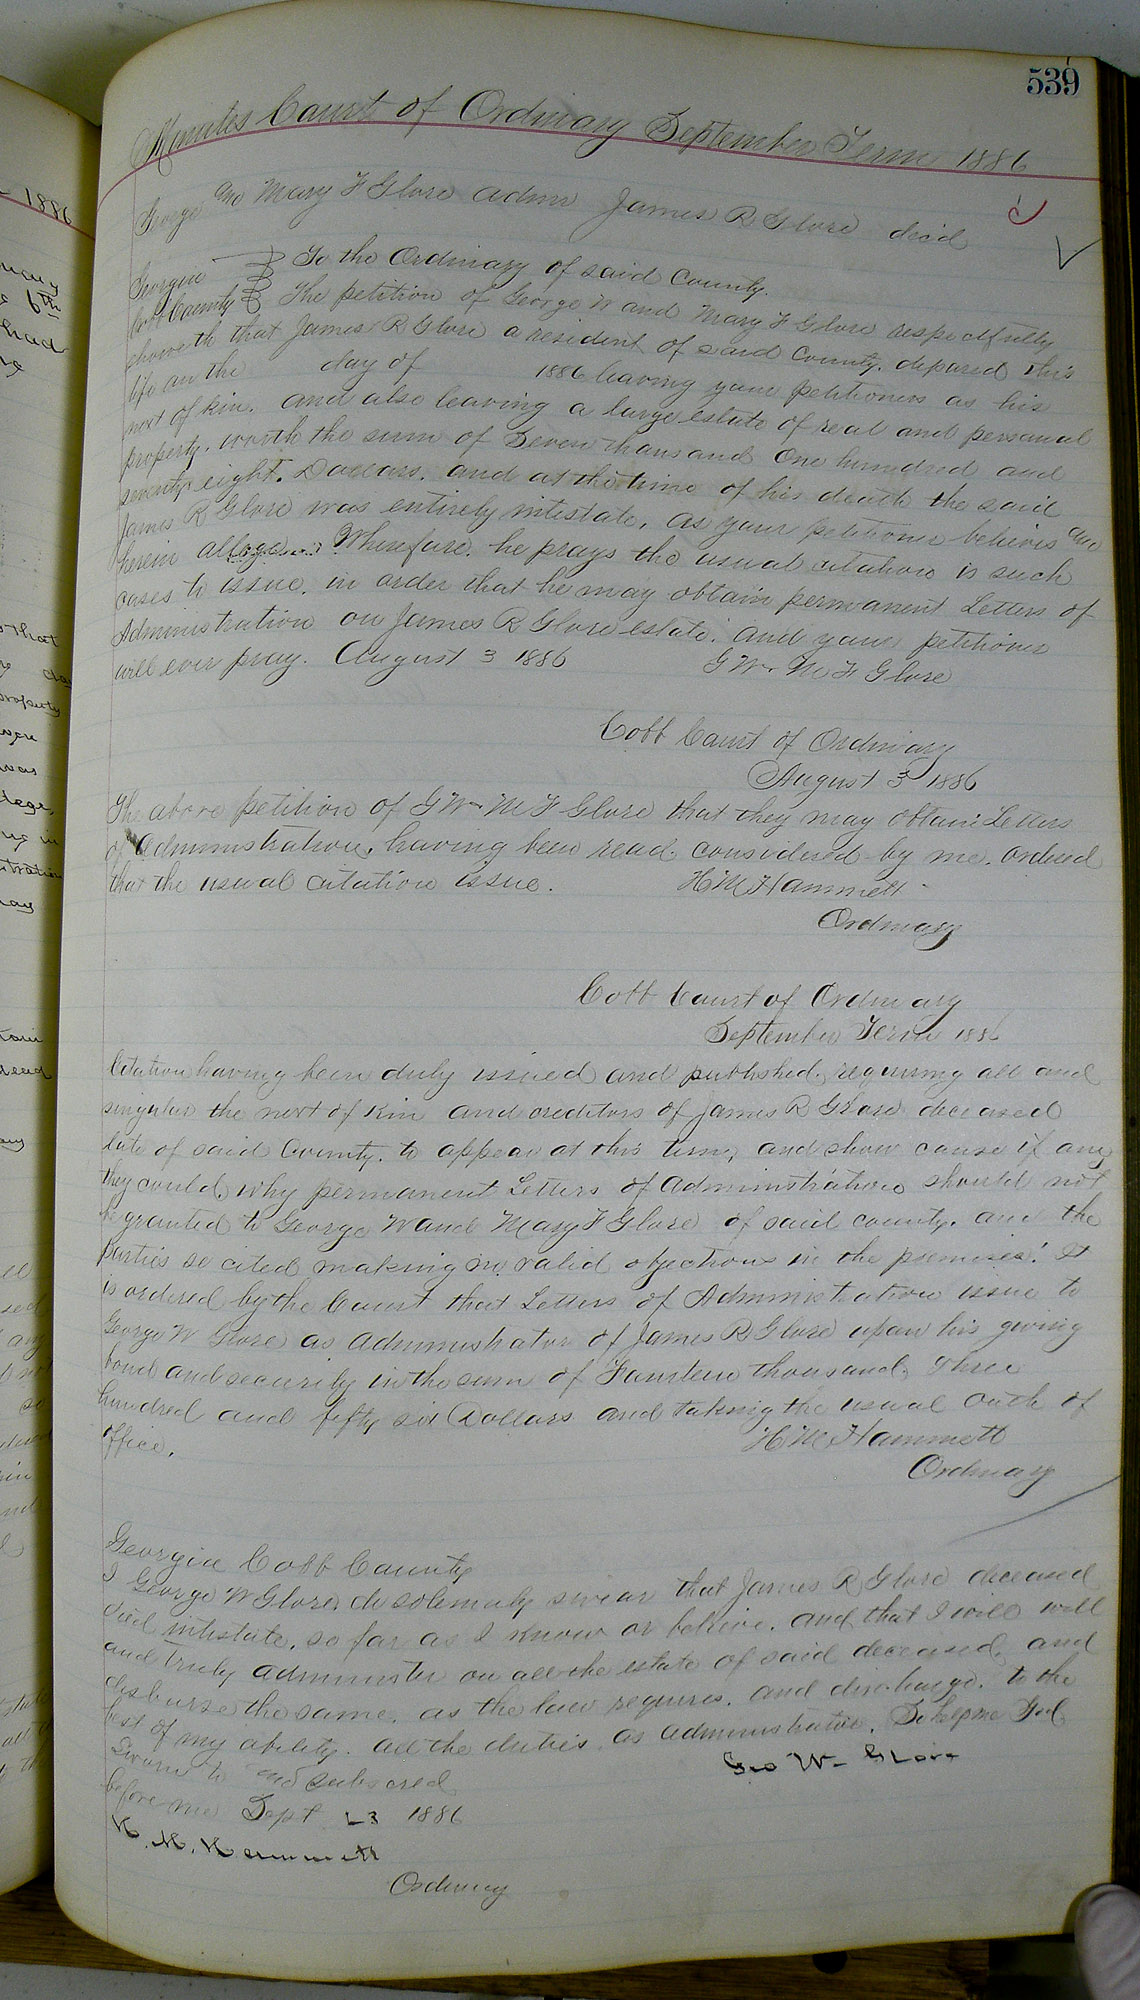 539
Minutes Court of Ordinary September Term 1886
George and Mary F Glore admr James R Glore decd
Georgia } To the Ordinary of said County.
Cobb County } The petition of George W and Mary F Glore respectfully
showeth that James R Glore a resident of said County, depared this
life on the day of 1886 leaving your petitioners as his
next of kin. and also leaving a large estate of real and personal
property, worth the sum of Seven thousand One hundred and
seventy eight. Dollars. and at the time of his death the said
James R Glore was entirely intestate, as your petitione believes and
herein allege Wherefore, he prays the usual citation is such
cases to issue, in order that he may obtain permanent Letters of
Administration on James R Glore estate. and your petitioner
will ever pray. August 3 1886 G W & M F Glore
Cobb Court of Ordinary
August 3 1886
The above petition of G W & M F Glore that they may obtain Letters
of Administration, having been read considered by me. ordered
that the usual citation issue. H M Hammett
Ordinary
Cobb Court of Ordinary
September Term 1886
Citation having been duly issued and published, requiring all and
singular the next of Kin and creditors of James R Glore deceased
late of said County. to appear at this term, and show cause if any
they could, why permanent Letters of Administration should not
be granted to George W and Mary F Glore of said county. and the
parties so cited making no valid objections in the premises. It
is ordered by the Court that Letters of Administration issue to
George W Glore as administrator of James R Glore upon his giving
bond and security in the sum of Fourteen thousand, three
hundred and fifty six Dollars and taking the usual oath of
office. H M Hammett
Ordinary
Georgia Cobb County
I George W Glore, do solemnly swear that James R Glore deceased
died intestate, so far as I know or believe, and that I will will
and truly administer on all the estate of said deceased, and
disburse the same, as the law requires. and discharge. to the
best of my ability. all the duties as administrator. So help me God
Sworn to and subscred Geo W. Glore
before me Sept 13 1886
H. M. Hammett
Ordinary